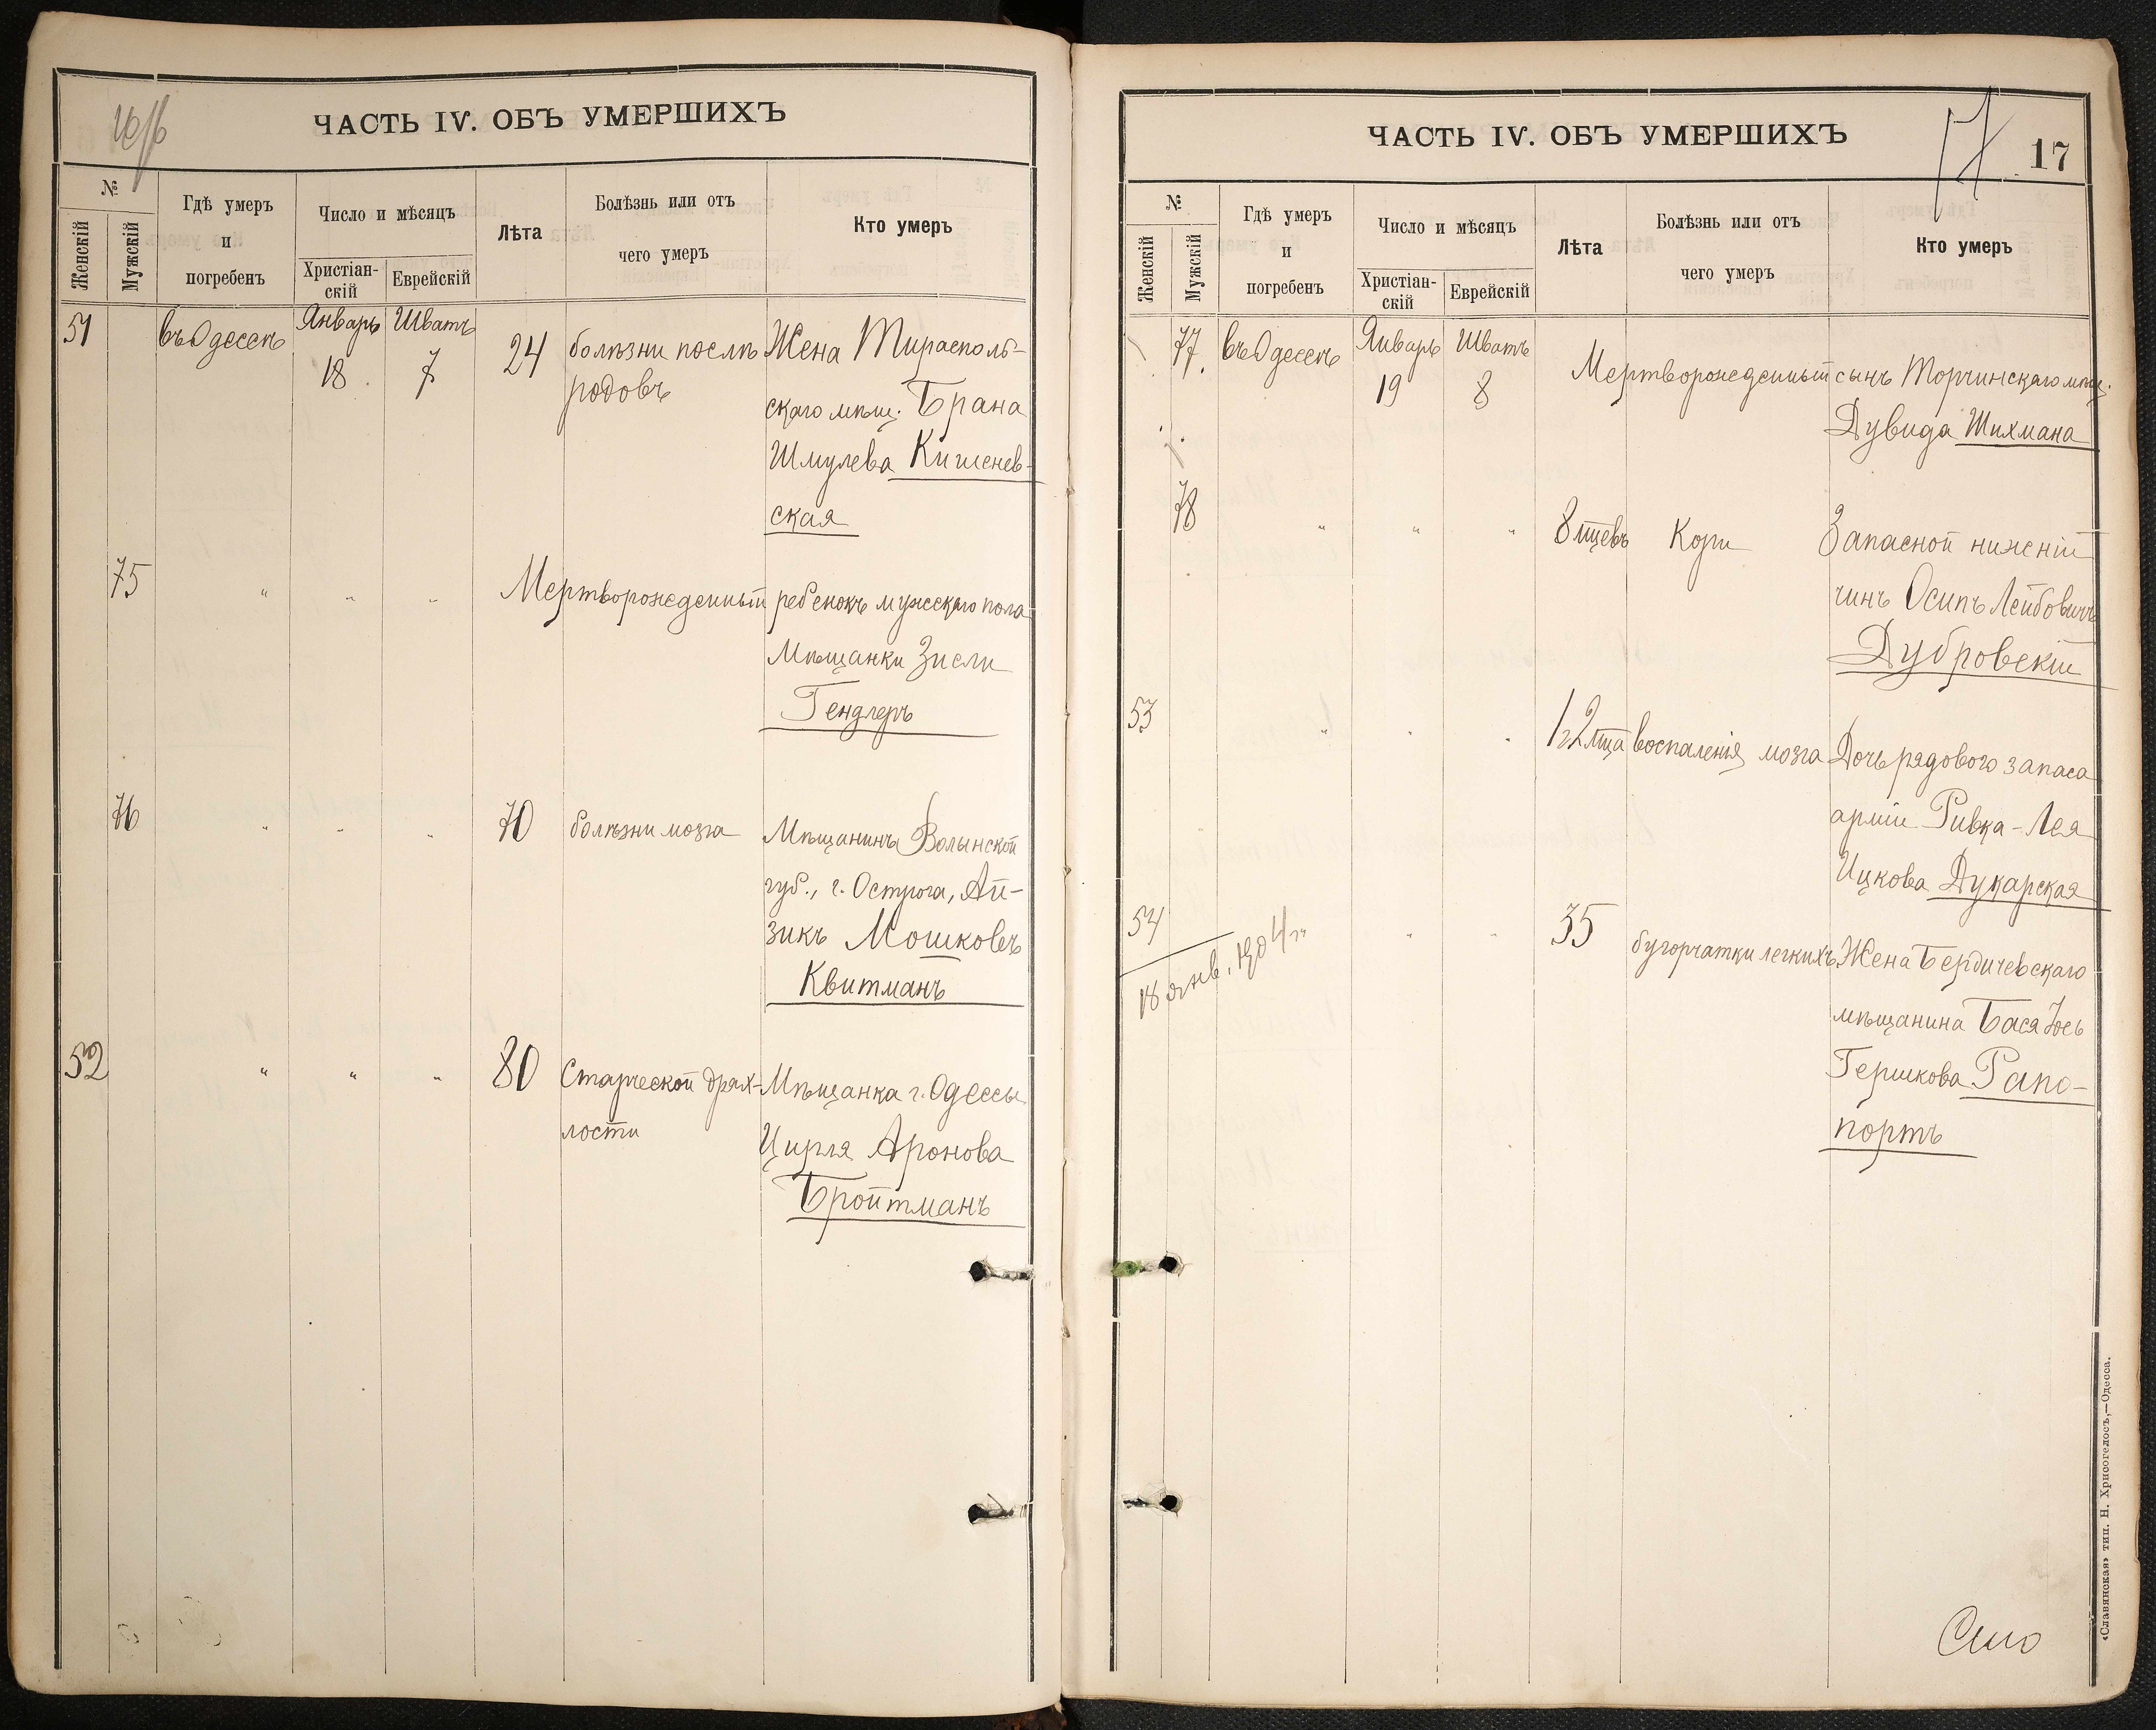 ЧАСТЬ IV. ОБЪ УМЕРШИХЪ
№
Женскій
Мужскій
Гдѣ умеръ
и
погребенъ
Число и мѣсяцъ
Христіан-
скій
Еврейскій
Лѣта
Болѣзнь или отъ
чего умеръ
Кто умеръ
51 въ Одессѣ Январь 18 Шватъ 7 24 болѣзни послѣ Жена Тирасполь-
родовъ скаго мѣщ. Брана
Шмулева Кишенев-
ская
75 " " " Мертворожденный ребенокъ мужскаго пола
Мѣщанки Зисли
Гендлеръ
76 " " " 70 болѣзни мозга Мѣщанинъ Волынской
губ., г. Острога, Ай-
зикъ Мошковъ
Квитманъ
52 " " " 80 Старческой дрях- Мѣщанка г. Одессы
лости Цирля Аронова
Бройтманъ
ЧАСТЬ IV. ОБЪ УМЕРШИХЪ
17
№
Женскій
Мужскій
Гдѣ умеръ
и
погребенъ
Число и мѣсяцъ
Христіан-
скій
Еврейскій
Лѣта
Болѣзнь или отъ
чего умеръ
Кто умеръ
77. въ Одессѣ Январь 19 Шватъ 8 Мертворожденный сынъ Торчинскаго мѣщ.
Дувида Шихмана
78 " " " 8 мцевъ Кори Запасной нижній
чинъ Осипъ Лейбовичъ
Дубровскій
53 " " " 1½ мца воспаленія мозга Дочь рядового запаса
арміи Ривка-Лея
Ицкова Дукарская
54 " " 35 бугорчатки легкихъ Жена Бердичевскаго
18 янв. 1904 г. мѣщанина Бася
Гершкова Рапо-
портъ
«Славянская» тип. Н. Хрисогелосъ,—Одесса.